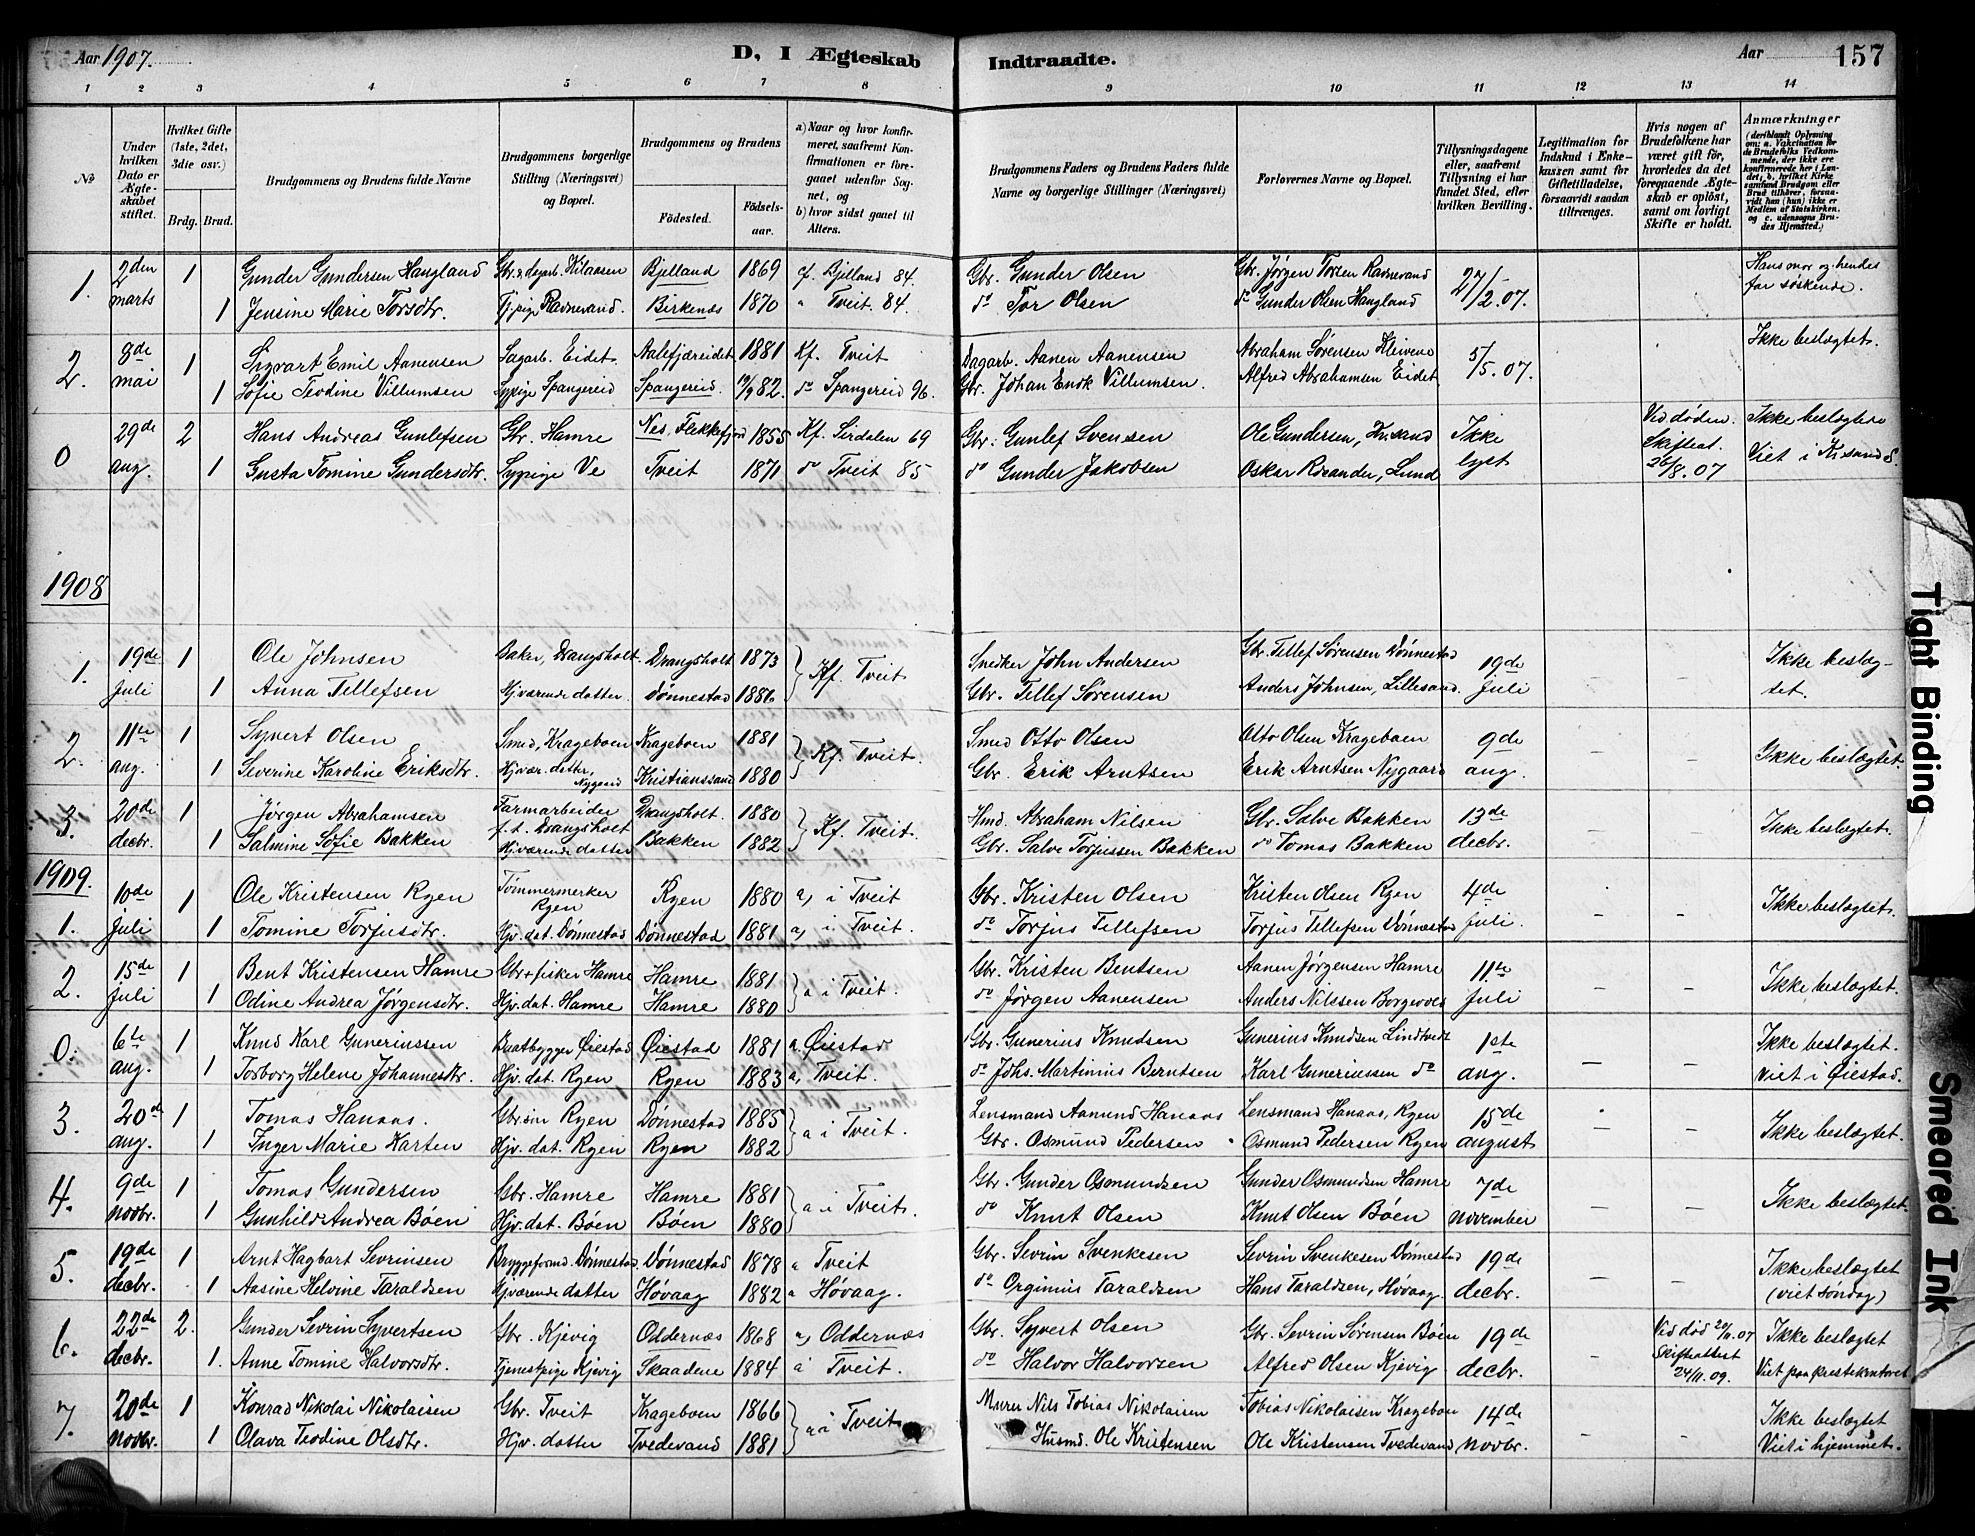 Aar 1907.
D, I Ægteskab Indtraadte.
Aar
157
1 2 3 4 5 6 7 8 9 10 11 12 13 14
No
Under hvilken Dato er Ægteskabet stiftet.
Hvilket Gifte (1ste, 2det, 3die osv.)
Brdg. Brud.
Brudgommens og Brudens fulde Navne
Brudgommens borgerlige Stilling (Næringsvei) og Bopæl.
Brudgommens og Brudens
Fødested. Fødselsaar.
a) Naar og hvor konfirmeret, saafremt Konfirmationen er foregaaet udenfor Sognet, og
b) hvor sidst gaaet til Alters.
Brudgommens Faders og Brudens Faders fulde Navne og borgerlige Stillinger (Næringsvei)
Forlovernes Navne og Bopæl.
Tillysningsdagene eller, saafremt Tillysning ei har fundet Sted, efter hvilken Bevilling.
Legitimation for Indskud i Enkekassen samt for Giftetilladelse, forsaavidt saadan tiltrænges.
Hvis nogen af Brudefolkene har været gift før, hvorledes da det foregaaende Ægteskab er opløst, samt om lovligt Skifte er holdt.
Anmærkninger (deriblandt Oplysning om: a. Vaksination for de Brudefolks Vedkommende, der ikke ere konfirmerede her i Landet; b. hvilket Kirkesamfund Brudgom eller Brud tilhører, forsaavidt han (hun) ikke er Medlem af Statskirken, og c. udensogns Brudes Hjemsted.)
1. 2den marts 1 Gunder Gundersen Haugland Gbr. & dagarb. Kilaasen Bjelland 1869 cf. Bjelland 84. Gbr. Gunder Olsen Gbr. Jørgen Torsen Ravnevand 27/2.07. Hans mor og hendes far søskende.
1 Jensine Marie Torsdtr. Tj.pige Ravnevand. Birkenes 1870 " Tveit. 84. do Tor Olsen do Gunder Olsen Haugland
2. 8de mai 1 Sigvart Emil Aanensen Sagarb. Eidet. Aalefjæreidet 1881 Kf. Tveit Dagarb. Aanen Aanensen Abraham Sørensen Kleivene 5/5.07. Ikke beslægtet.
1 Sofie Teodine Villumsen Sypige Spangereid Spangereid. 19/9 82. do Spangereid 96. Gbr. Johan Enok Villumsen. Alfred Abrahamsen Eidet
0 29de aug. 2 Hans Andreas Gunlefsen Gbr. Hamre Nes, Flekkefjord 1855 Kf. Sirdalen 69 Gbr. Gunlef Svensen Ole Gundersen, Krisand Ikke lyst Ved døden. Skifteat. 26/8.07 Ikke beslægtede Viet i Krsand S.
1 Gusta Tomine Gundersdtr. Sypige Ve Tveit 1871 do Tveit 85 do Gunder Jakobsen Oskar Rosander, Lund
1908
1. 19de Juli 1 Ole Johnsen Baker, Drangsholt. Drangsholt 1873 Kf. Tveit Snedker John Andersen Gbr. Tellef Sørensen Dønnestad 19de juli Ikke beslægtet.
1 Anna Tellefsen Hj.værende datter. Dønnestad 1886 Gbr. Tellef Sørensen Anders Johnsen, Lillesand.
2. 11te aug. 1 Syvert Olsen Smed, Krageboen Krageboen 1881 Kf. Tveit. Smed Otto Olsen Otto Olsen Krageboen 9de aug. Ikke beslægtet.
1 Severine Karoline Eriksdtr. Hj.vær. datter, Nygard Kristianssand 1880 Gbr. Erik Arntsen Erik Arntsen Nygaard
3. 20de decbr. 1 Jørgen Abrahamsen Farmarbeider f.t. Drangsholt Drangsholt. 1880 Kf. Tveit. Hmd. Abraham Nilsen Gbr. Salve Bakken 13de decbr. Ikke beslægtet.
1 Salmine Sofie Bakken Hj.værende datter Bakken 1882 Gbr. Salve Torjussen Bakken do Tomas Bakken
1909.
1. 10de Juli 1 Ole Kristensen Ryen Tømmermerker Ryen Ryen 1880 a, i Tveit Gbr. Kristen Olsen Kristen Olsen Ryen 4de juli. Ikke beslægtet.
1 Tomine Torjusdtr. Hjv. dat. Dønnestad Dønnestad 1881 a, i Tveit. do Torjus Tellefsen Torjus Tellefsen Dønnestad
2. 15de juli 1 Bent Kristensen Hamre Gbr + fisker Hamre Hamre 1881 a i Tveit. Gbr. Kristen Bentsen Aanen Jørgensen Hamre 11te juli Ikke beslægtet.
1 Odine Andrea Jørgensdtr. Hjv. dat. Hamre Hamre 1880 do Jørgen Aanensen Anders Nilssen
0. 6te aug. 1 Knud Karl Guneriussen Baatbygger Øiestad Øiestad 1881 a. Øiestad Gbr. Gunerius Knudsen Gunerius Knudsen Lindtveit 1ste aug. Ikke beslægtet. Viet i Øiestad.
1 Torborg Helene Johannesdtr. Hjv. dat. Ryen Ryen 1883 a, Tveit. do Johs. Martinius Berntsen Karl Guneriussen do
3. 20de aug. 1 Tomas Hanaas. Gbr.søn Ryen Dønnestad 1885 a i Tveit. Lensmand Aamund Hanaas Lensmand Hanaas, Ryen 15de august Ikke beslægtet.
1 Inger Marie Karten Hjv. dat. Ryen Ryen 1882 Gbr. Osmund Pedersen Osmund Pedersen Ryen
4. 9de novbr. 1 Tomas Gundersen Gbr. Hamre Hamre 1881 a i Tveit. Gbr. Gunder Osmundsen Gunder Osmundsen Hamre 7de november Ikke beslægtet.
1 Gunhild Andrea Bøen Hjv. dat. Bøen Bøen 1880 do Knut Olsen Knut Olsen Bøen
5. 19de decbr. 1 Arnt Hagbart Sevrinsen Bryggeformd. Dønnestad. Dønnestad 1878 a Tveit Gbr. Sevrin Svenkesen Sevrin Svenkesen Dønnestad 19de decbr. Ikke beslægtet (viet Søndag)
1 Aasine Helvine Taraldsen Hjværende datter Høvaag 1882 a Høvaag. do Orginius Taraldsen Hans Taraldsen, Høvaag.
6. 22de decbr. 2. Gunder Sevrin Syvertsen Gbr. Kjevig Oddernæs 1868 a, Oddernæs Gbr. Syvert Olsen Gbr. Sevrin Sørensen Bøen 19de decbr. Ved død 20/11.07 Skifteattest 24/11.09. Ikke beslægtet Viet paa prestekontoret
1. Anne Tomine Halvorsdtr. Tjenestpige Kjevig Skaadene 1884 a Tveit. do Halvor Halvorsen Alfred Olsen Kjevig
7. 20de novbr. 1 Konrad Nikolai Nikolaisen Gbr. Tveit Krageboen 1866 a i Tveit Murer Nils Tobias Nikolaisen Tobias Nikolaisen Krageboen 14de novbr. Ikke beslægtet Viet i hjemmet.
1 Olava Teodine Olsdtr. Hjv. datter Tvedevand 1881 Husmd. Ole Kristensen Ole Kristensen Tvedevand
Tight Binding
Smeared Ink